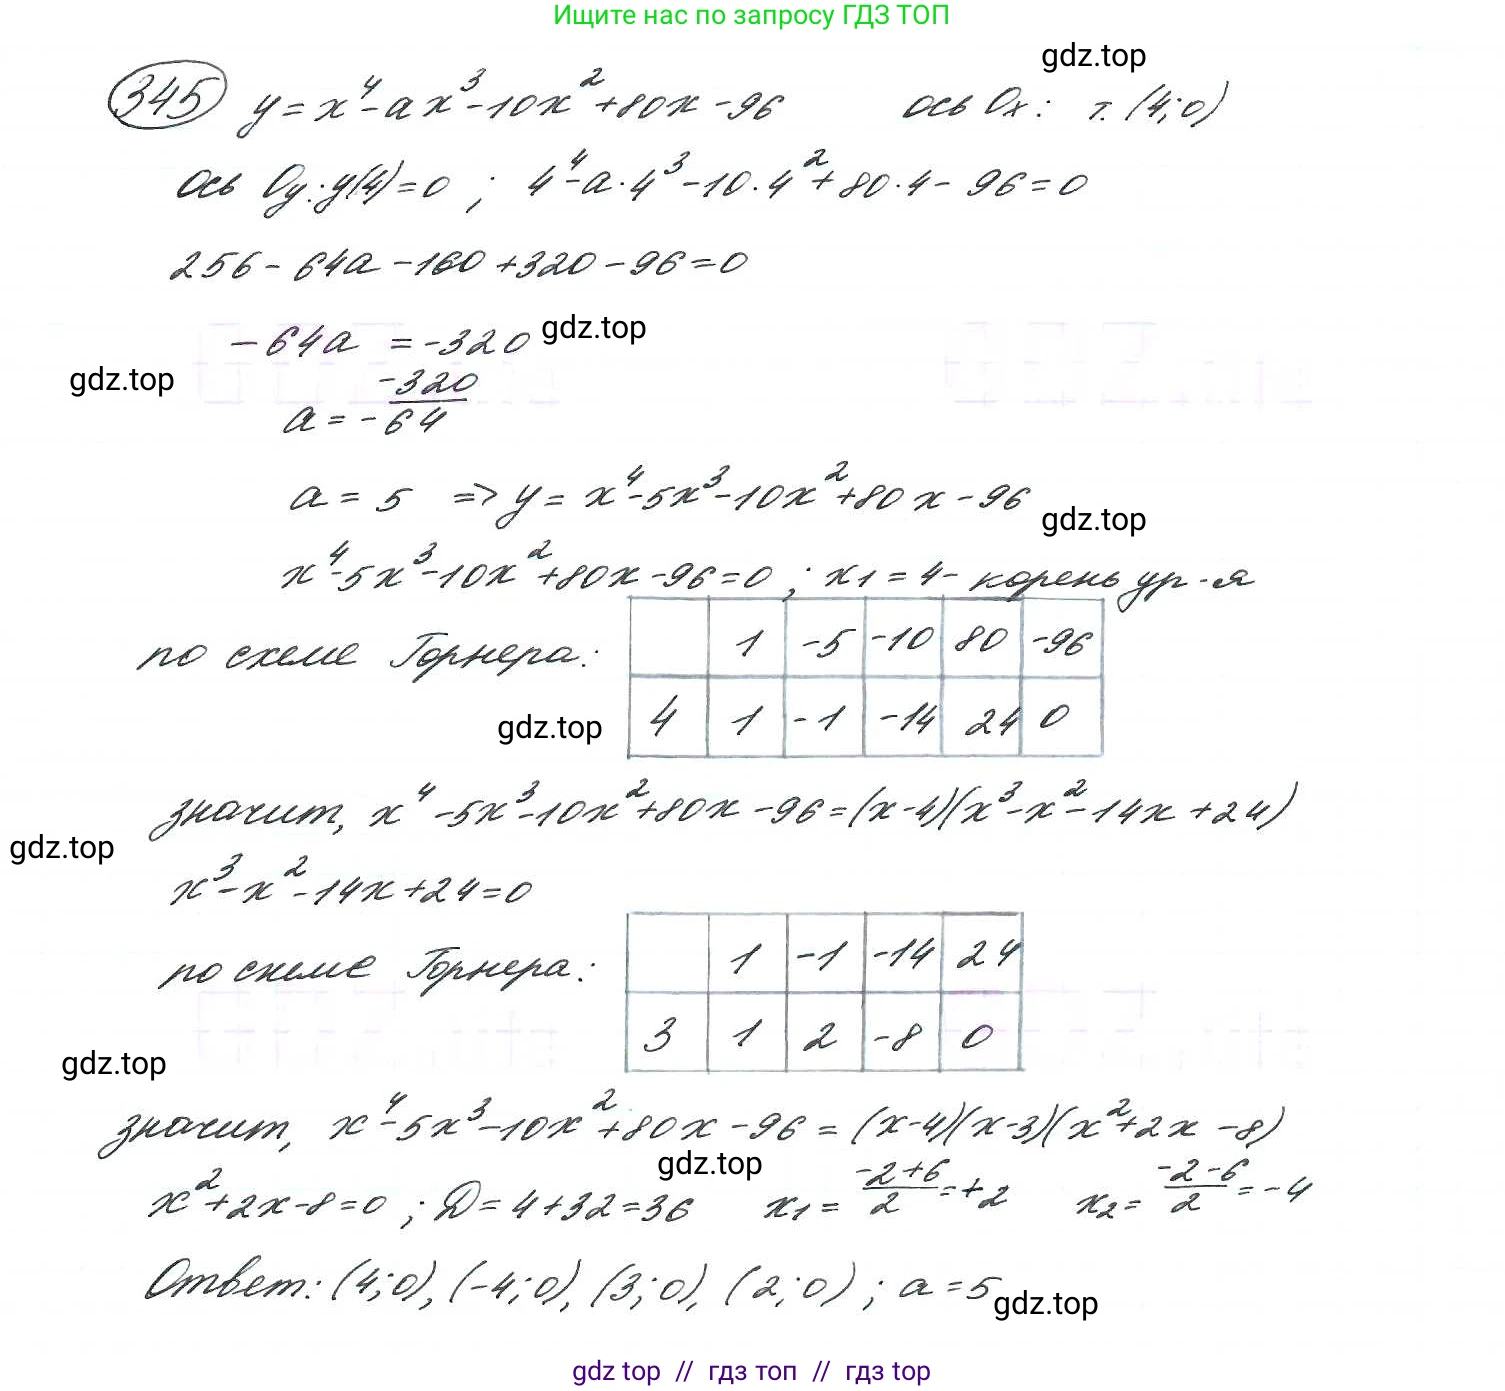 Ищите нас по запросу ГДЗ ТОП
gdz.top
345 y = x⁴ - ax³ - 10x² + 80x - 96 ось Ox: т. (4; 0)
ось Oy: y(4) = 0 ; 4⁴ - a · 4³ - 10 · 4² + 80 · 4 - 96 = 0
256 - 64a - 160 + 320 - 96 = 0
- 64a = -320
gdz.top
gdz.top
a = - -320/64
a = 5 => y = x⁴ - 5x³ - 10x² + 80x - 96
gdz.top
x⁴ - 5x³ - 10x² + 80x - 96 = 0 ; x₁ = 4 - корень ур-я
по схеме Горнера:
1 -5 -10 80 -96
4 1 -1 -14 24 0
gdz.top
значит, x⁴ - 5x³ - 10x² + 80x - 96 = (x - 4)(x³ - x² - 14x + 24)
gdz.top
x³ - x² - 14x + 24 = 0
по схеме Горнера:
1 -1 -14 24
3 1 2 -8 0
gdz.top
значит, x⁴ - 5x³ - 10x² + 80x - 96 = (x - 4)(x - 3)(x² + 2x - 8)
gdz.top
x² + 2x - 8 = 0 ; D = 4 + 32 = 36 x₁ = -2+6/2 = +2 x₂ = -2-6/2 = -4
Ответ: (4; 0), (-4; 0), (3; 0), (2; 0) ; a = 5
gdz.top
gdz top // гдз топ // гдз top